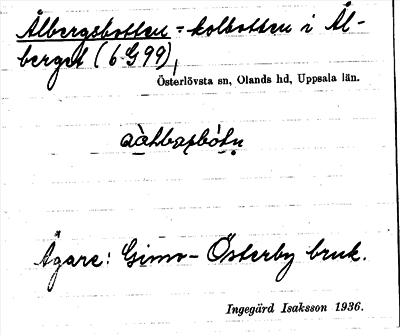 Ålbergsbotten = kolbotten i Ål-
berget (6 G 99),
Österlövsta sn, Olands hd, Uppsala län.
Ägare: Gimo-Österby bruk.
Ingegärd Isaksson 1936.